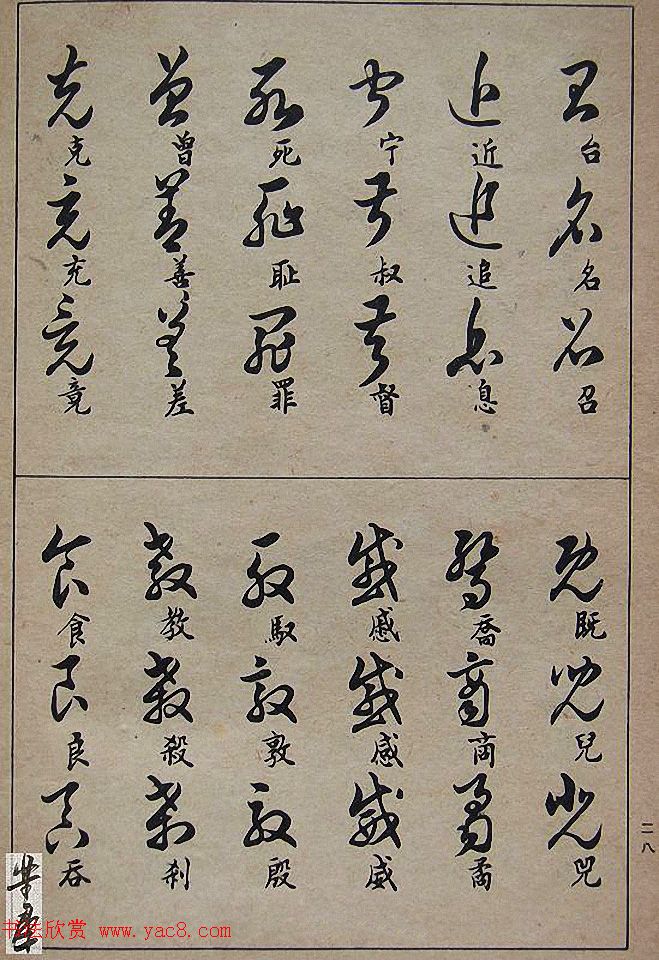 台 名 召
近 追 息
宁 叔 督
死 耻 罪
曾 善 差
克 充 竟
既 兒 兕
喬 商 矞
戚 感 威
馭 敦 殷
教 殺 刹
食 良 吞
二八
书法欣赏 www.yac8.com